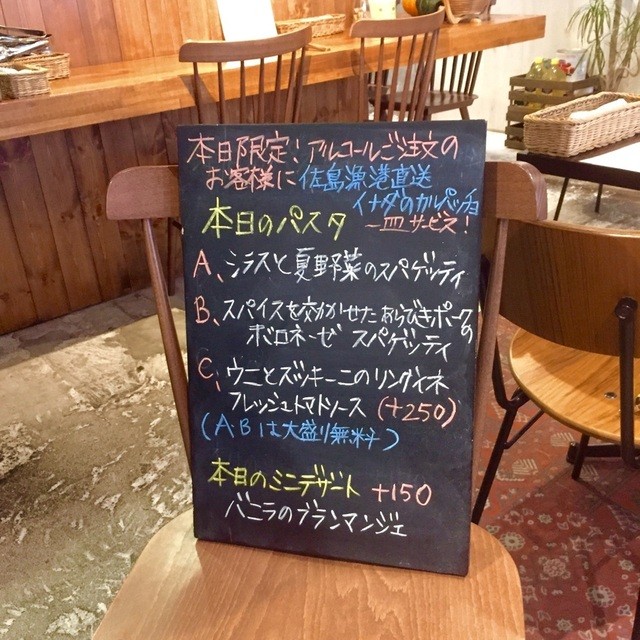 本日限定!アルコールご注文の
お客様に佐島漁港直送
イナダのカルパッチョ
一皿サービス!
本日のパスタ
A、シラスと夏野菜のスパゲッティ
B、スパイスを効かせたあらびきポークの
ボロネーゼ スパゲッティ
C、ウニとズッキーニのリングイネ
フレッシュトマトソース (+250)
(A・Bは大盛り無料)
本日のミニデザート +150
バニラのブランマンジェ